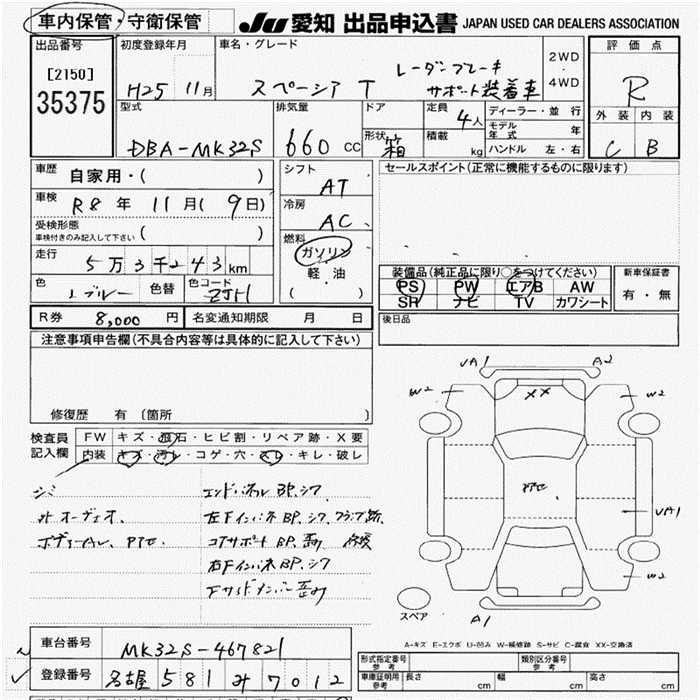 車内保管・守衛保管
JU 愛知 出品申込書 JAPAN USED CAR DEALERS ASSOCIATION
出品番号
[2150]
35375
初度登録年月
H25 11月
車名・グレード
スペーシア T
レーダーブレーキ
サポート装着車
2WD
4WD
評価点
R
外装 内装
C B
型式
DBA-MK32S
排気量
660 CC
ドア
形状
箱
定員
4人
積載
kg
ディーラー・並行
モデル年式 年
ハンドル 左・右
車歴
自家用・( )
車検
R8年 11月(9日)
受検形態
車検付きのみ記入して下さい ( )
走行
5万3千243km
色
ブルー
色替
色コード
ZJH
シフト
AT
冷房
AC
燃料
ガソリン
軽油
( )
セールスポイント(正常に機能するものに限ります)
装備品(純正品に限り○をつけてください)
PS PW エアB AW
SR ナビ TV カワシート
新車保証書
有・無
R券 8,000円
名変通知期限 月 日
後日品
注意事項申告欄(不具合内容等は具体的に記入して下さい)
修復歴 有 (箇所
検査員
記入欄
FW キズ・飛石・ヒビ割・リペア跡・X要
内装 キズ・汚レ・コゲ・穴・スレ・キレ・破レ
シミ
外オーディオ、
エンドパネルBP.シワ
左下インパネBP.シワ
コアサポートBP.
右下インパネBP.シワ
VA1 A2
W2 W2
XX
VA1
W2
A1
スペア
A-キズ E-エクボ U-凹み W-補修跡 S-サビ C-腐食 XX-交換済
車台番号 MK32S-467821
登録番号 名古屋 581 み 7012
形式指定番号
参考
類別区分番号
参考
車庫証明用
参考
長さ cm 幅 cm 高さ cm